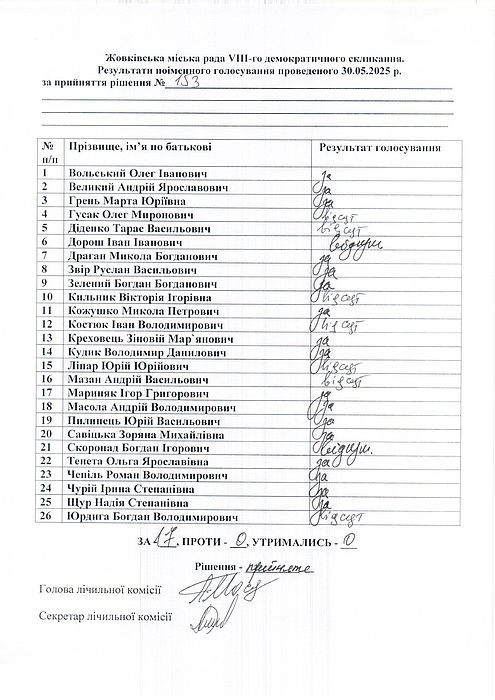 Жовківська міська рада VIII-го демократичного скликання.
Результати поіменного голосування проведеного 30.05.2025 р.
за прийняття рішення № 153
№ п/п Прізвище, ім’я по батькові Результат голосування
1 Вольський Олег Іванович за
2 Великий Андрій Ярославович за
3 Грень Марта Юріївна за
4 Гусак Олег Миронович відсут
5 Діденко Тарас Васильович відсут
6 Дорош Іван Іванович
7 Драган Микола Богданович за
8 Звір Руслан Васильович за
9 Зелений Богдан Богданович за
10 Кильник Вікторія Ігорівна відсут
11 Кожушко Микола Петрович за
12 Костюк Іван Володимирович відсут
13 Креховець Зіновій Мар`янович за
14 Кудик Володимир Данилович за
15 Ліпар Юрій Юрійович відсут
16 Мазан Андрій Васильович відсут
17 Марцняк Ігор Григорович за
18 Масола Андрій Володимирович за
19 Пилипець Юрій Васильович за
20 Савіцька Зоряна Михайлівна за
21 Скоропад Богдан Ігорович
22 Тепета Ольга Ярославівна за
23 Чепіль Роман Володимирович за
24 Чурій Ірина Степанівна за
25 Щур Надія Степанівна за
26 Юрдига Богдан Володимирович відсут
ЗА 17, ПРОТИ - 0, УТРИМАЛИСЬ - 0
Рішення - прийнято
Голова лічильної комісії
Секретар лічильної комісії